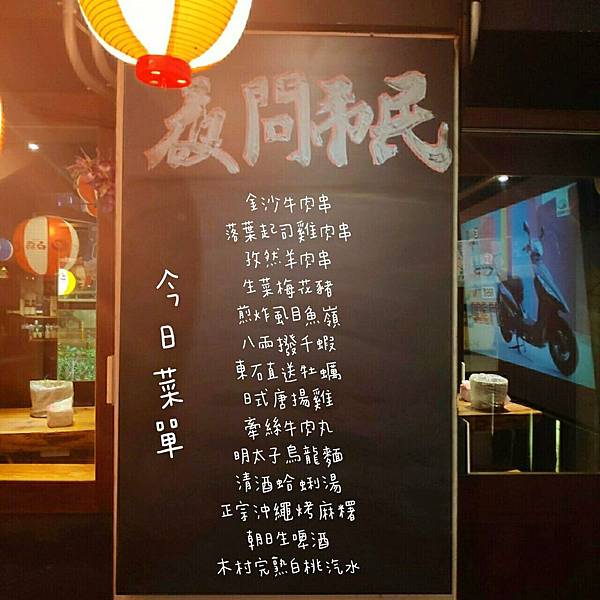 夜問移民
今日菜單
金沙牛肉串
落葉起司雞肉串
孜然羊肉串
生菜梅花豬
煎炸虱目魚嶺
八兩撥千蝦
東石直送牡蠣
日式唐揚雞
牽絲牛肉丸
明太子烏龍麵
清酒蛤蜊湯
正宗沖繩烤麻糬
朝日生啤酒
木村完熟白桃汽水